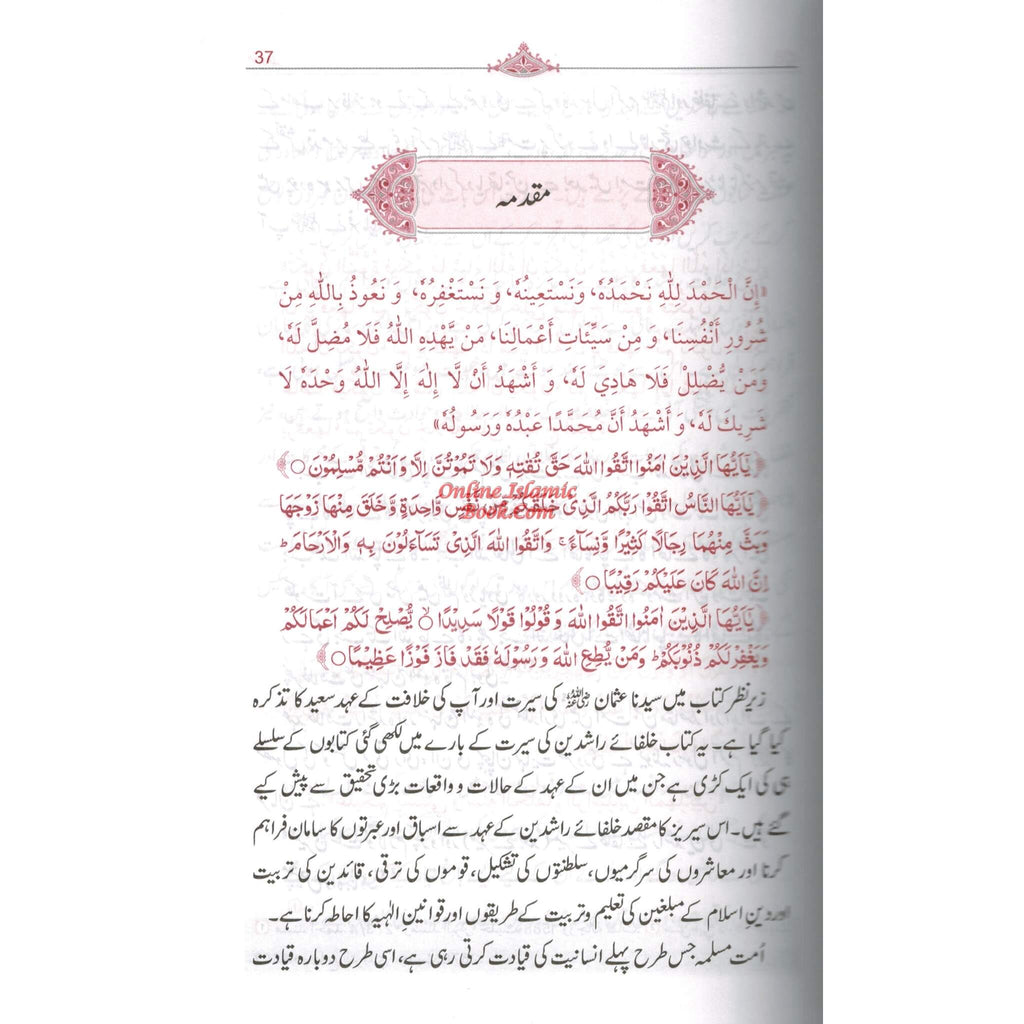 37
مقدمہ
«إِنَّ الْحَمْدَ لِلّٰهِ نَحْمَدُهٗ، وَنَسْتَعِينُهٗ، وَ نَسْتَغْفِرُهٗ، وَ نَعُوذُ بِاللّٰهِ مِنْ
شُرُورِ أَنْفُسِنَا، وَ مِنْ سَيِّئَاتِ أَعْمَالِنَا، مَنْ يَّهْدِهِ اللّٰهُ فَلَا مُضِلَّ لَهٗ،
وَمَنْ يُّضْلِلْ فَلَا هَادِيَ لَهٗ، وَ أَشْهَدُ أَنْ لَّا إِلٰهَ إِلَّا اللّٰهُ وَحْدَهٗ لَا
شَرِيكَ لَهٗ، وَ أَشْهَدُ أَنَّ مُحَمَّدًا عَبْدُهٗ وَرَسُولُهٗ»
﴿يٰٓاَيُّهَا الَّذِيْنَ اٰمَنُوا اتَّقُوا اللّٰهَ حَقَّ تُقٰتِهٖ وَلَا تَمُوْتُنَّ اِلَّا وَاَنْتُمْ مُّسْلِمُوْنَ○﴾
﴿يٰٓاَيُّهَا النَّاسُ اتَّقُوْا رَبَّكُمُ الَّذِىْ خَلَقَكُمْ مِّنْ نَّفْسٍ وَّاحِدَةٍ وَّخَلَقَ مِنْهَا زَوْجَهَا
Online Islamic
Book.Com
وَبَثَّ مِنْهُمَا رِجَالًا كَثِيْرًا وَّنِسَآءً ۚ وَاتَّقُوا اللّٰهَ الَّذِىْ تَسَآءَلُوْنَ بِهٖ وَالْاَرْحَامَ ؕ
اِنَّ اللّٰهَ كَانَ عَلَيْكُمْ رَقِيْبًا○﴾
﴿يٰٓاَيُّهَا الَّذِيْنَ اٰمَنُوا اتَّقُوا اللّٰهَ وَ قُوْلُوْا قَوْلًا سَدِيْدًا○ۙ يُّصْلِحْ لَكُمْ اَعْمَالَكُمْ
وَيَغْفِرْ لَكُمْ ذُنُوْبَكُمْ ؕ وَمَنْ يُّطِعِ اللّٰهَ وَ رَسُوْلَهٗ فَقَدْ فَازَ فَوْزًا عَظِيْمًا○﴾
زیرِ نظر کتاب میں سیدنا عثمان رضی اللہ عنہ کی سیرت اور آپ کی خلافت کے عہد سعید کا تذکرہ
کیا گیا ہے۔ یہ کتاب خلفائے راشدین کی سیرت کے بارے میں لکھی گئی کتابوں کے سلسلے
ہی کی ایک کڑی ہے جن میں ان کے عہد کے حالات و واقعات بڑی تحقیق سے پیش کیے
گئے ہیں۔ اس سیریز کا مقصد خلفائے راشدین کے عہد سے اسباق اور عبرتوں کا سامان فراہم
کرنا اور معاشروں کی سرگرمیوں، سلطنتوں کی تشکیل، قوموں کی ترقی، قائدین کی تربیت
اور دینِ اسلام کے مبلغین کی تعلیم و تربیت کے طریقوں اور قوانین الٰہیہ کا احاطہ کرنا ہے۔
اُمت مسلمہ جس طرح پہلے انسانیت کی قیادت کرتی رہی ہے، اسی طرح دوبارہ قیادت